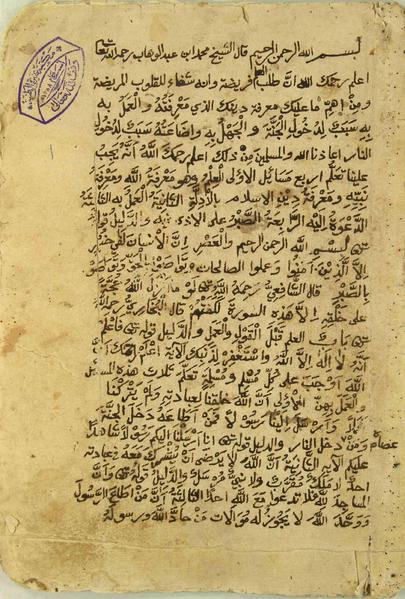 بسم الله الرحمن الرحيم قال الشيخ محمد ابن عبد الوهاب رحمه الله تعا
اعلم رحمك الله ان طلب العلم فريضة وانه شفاء للقلوب المريضة
ومن اهم ما عليك معرفة دينك الذي معرفته والعمل به
به سبب لدخول الجنة والجهل به واضاعته سبب لدخول
النار اعاذنا الله والمسلمين من ذلك اعلم رحمك الله انه يجب
علينا تعلم اربع مسائل الاولى العلم وهو معرفة الله ومعرفة
نبيه ومعرفة دين الاسلام بالادلة الثانية العمل به الثالثة
الدعوة اليه الرابعة الصبر على الاذى فيه والدليل قوله
تعى بسم الله الرحمن الرحيم والعصر ان الانسان لفي خسر
الا الذين آمنوا وعملوا الصالحات وتواصوا بالحق وتواصوا
بالصبر قال الشافعي رحمه الله تعى لو ما انزل الله حجة
على خلقه الا هذه السورة لكفتهم قال البخاري رحمه الله
تعى باب العلم قبل القول والعمل والدليل قوله تعى فاعلم
انه لا اله الا الله واستغفر لذنبك الآية اعلم رحمك الله
الله اوجب على كل مسلم ومسلمة تعلم ثلاث هذه المسائل
والعمل بهن الاولى ان الله خلقنا لعبادته ولم يتركنا
هملا وارسل الينا رسولا فمن اطاعه دخل الجنة
ومن عصاه دخل النار والدليل قوله تعى انا ارسلنا اليكم رسولا شاهدا
عليكم الآية الثانية ان الله لا يرضى ان يشرك معه في عبادته
احد لا ملك مقرب ولا نبي مرسل والدليل قوله تعى وان
المساجد لله فلا تدعوا مع الله احدا الثالثة ان من اطاع الرسول
ووحد الله لا يجوز له موالات من حاد الله ورسوله